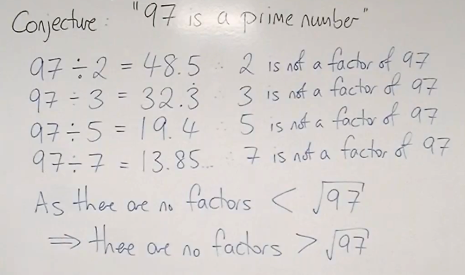 Conjecture: "97 is a prime number"
97 ÷ 2 = 48.5 ∴ 2 is not a factor of 97
97 ÷ 3 = 32.3̇ ∴ 3 is not a factor of 97
97 ÷ 5 = 19.4 ∴ 5 is not a factor of 97
97 ÷ 7 = 13.85... ∴ 7 is not a factor of 97
As there are no factors < √97
⇒ there are no factors > √97